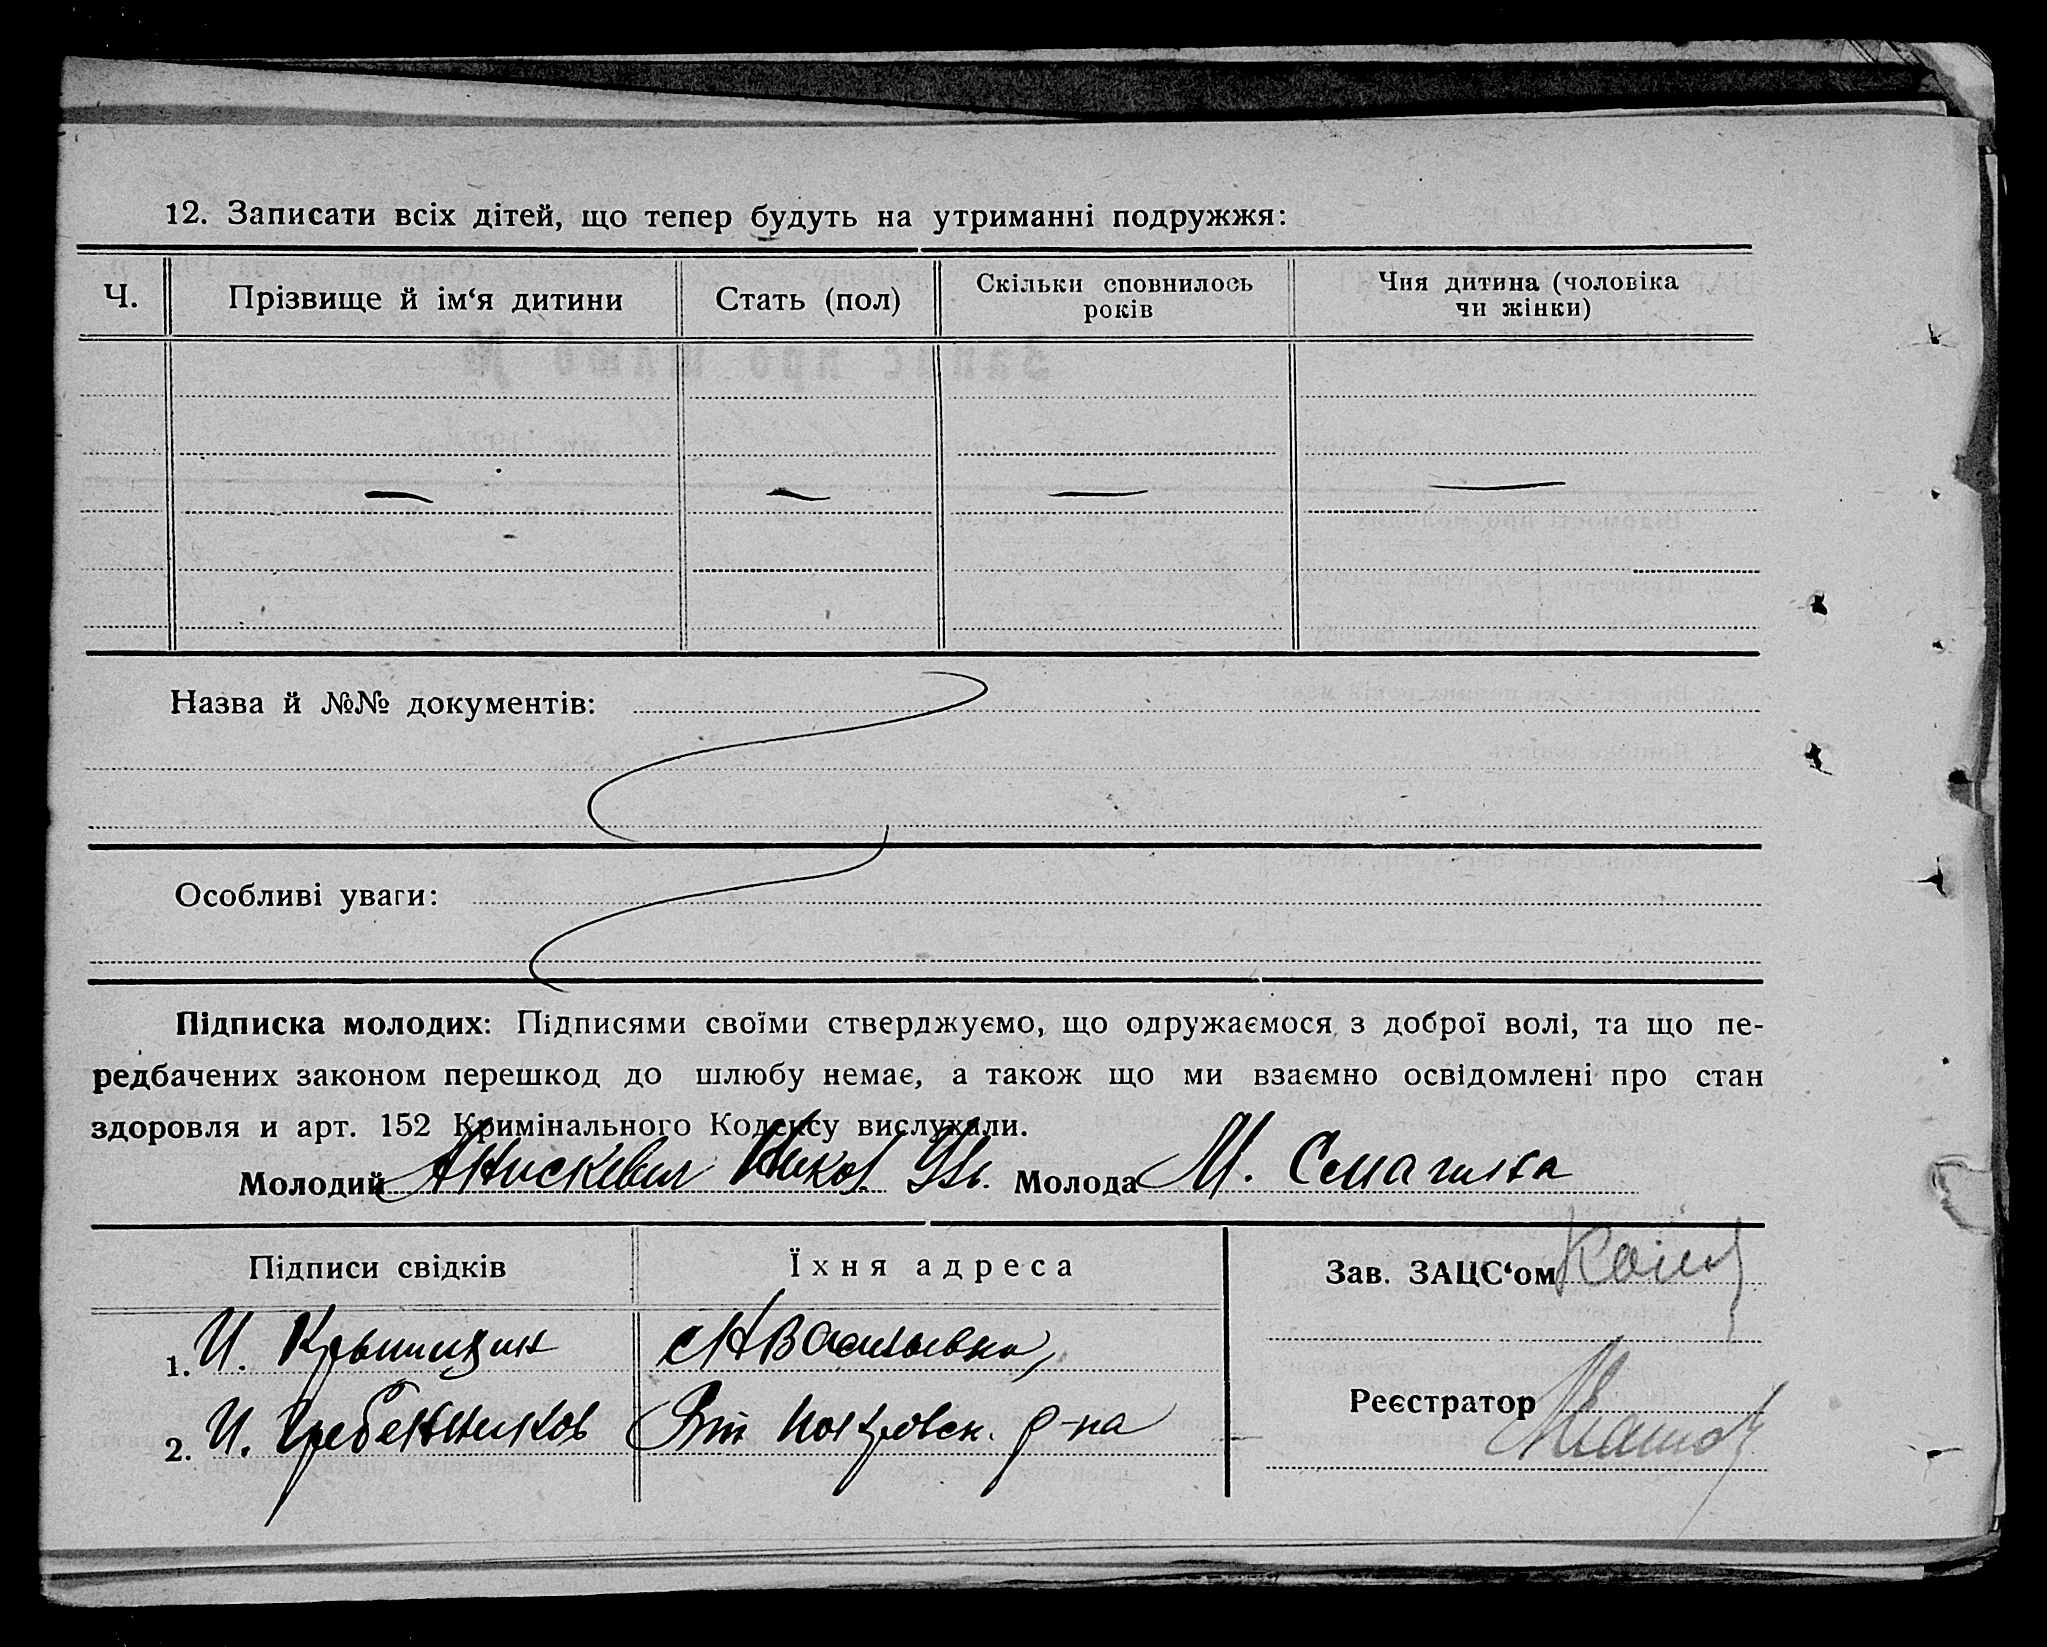 12. Записати всіх дітей, що тепер будуть на утриманні подружжя:
Ч. Прізвище й ім‘я дитини Стать (пол) Скільки сповнилось років Чия дитина (чоловіка чи жінки)
— — — —
Назва й №№ документів:
Особливі уваги:
Підписка молодих: Підписями своїми стверджуємо, що одружаємося з доброї волі, та що пе-
редбачених законом перешкод до шлюбу немає, а також що ми взаємно освідомлені про стан
здоровля и арт. 152 Кримінального Кодексу вислухали.
Молодий Анискевич Никол. Молода М.
Підписи свідків Їхня адреса Зав. ЗАЦС‘ом
1. И. с Н Васильевка,
2. И. Гребенников Покровск. р-на
Реєстратор